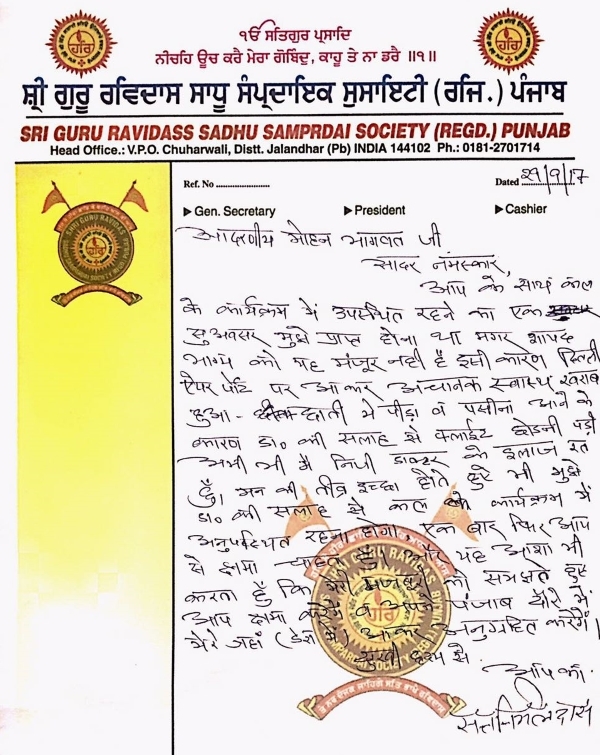 ੴ ਸਤਿਗੁਰ ਪ੍ਰਸਾਦਿ
ਨੀਚਹਿ ਊਚ ਕਰੈ ਮੇਰਾ ਗੋਬਿੰਦੁ, ਕਾਹੂ ਤੇ ਨਾ ਡਰੈ ॥੧॥
ਸ਼੍ਰੀ ਗੁਰੂ ਰਵਿਦਾਸ ਸਾਧੂ ਸੰਪ੍ਰਦਾਇਕ ਸੁਸਾਇਟੀ (ਰਜਿ.) ਪੰਜਾਬ
SRI GURU RAVIDASS SADHU SAMPRDAI SOCIETY (REGD.) PUNJAB
Head Office.: V.P.O. Chuharwali, Distt. Jalandhar (Pb) INDIA 144102 Ph.: 0181-2701714
Ref. No .................... Dated 29/9/17
▶Gen. Secretary ▶President ▶Cashier
आदरणीय मोहन भागवत जी
सादर नमस्कार,
आप के साथ कल
के कार्यक्रम में उपस्थित रहने का एक
सुअवसर मुझे प्राप्त होना था मगर शायद
भाग्य को यह मंजूर नही है इसी कारण दिल्ली
ऐयर पोर्ट पर आकर अचानक स्वास्थ खराब
हुआ - छाती मे पीड़ा व पसीना आने के
कारण डा० की सलाह से फ्लाईट छोडनी पड़ी
अभी भी मैं निजी डाक्टर के इलाज रत
हूँ। मन की तीव्र इच्छा होते हुए भी मुझे
डा० की सलाह से कल के कार्यक्रम में
अनुपस्थित रहना होगा। एक बार फिर आप
से क्षमा चाहता हूँ। और यह आशा भी
करता हूँ कि मेरी मजबूरी को समझते हुए
आप क्षमा करेंगे व अपने पंजाब दौरे में
मेरे जहाँ (डेरा में) आकर अनुग्रहित करेंगे।
दुखी ह्रदय से
आपका